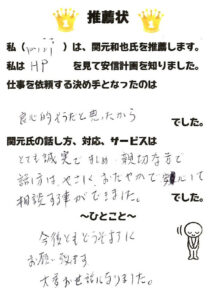 推薦状
私（　　　）は、関元和也氏を推薦します。
私は HP を見て安信計画を知りました。
仕事を依頼する決め手となったのは
良心的そうだと思ったから
でした。
関元氏の話し方、対応、サービスは
とても誠実で まじめ 親切な方で
話し方は やさしく おだやかで 安心して
相談する事ができました。
でした。
～ひとこと～
今後ともどうぞよろしく
お願い致します
大変お世話になりました。